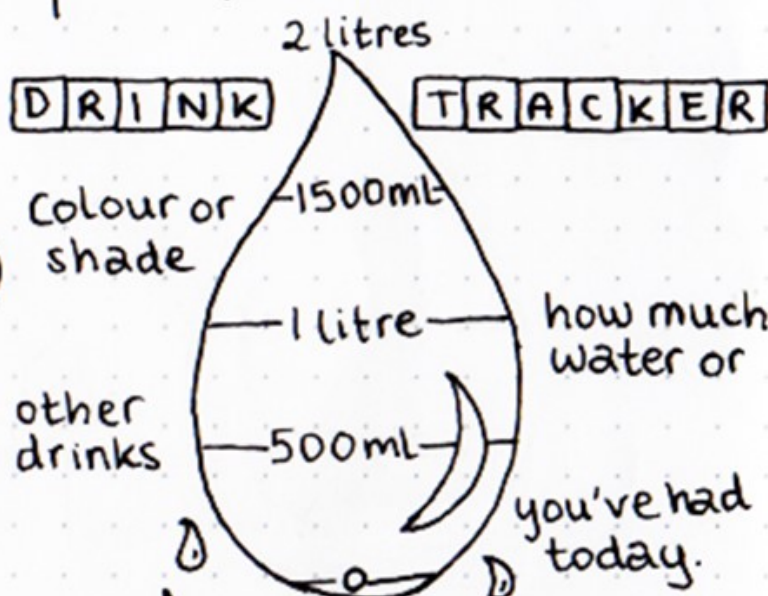 2 litres
DRINK TRACKER
1500ml
Colour or
shade
1 litre
how much
water or
other
drinks
500ml
you've had
today.
0